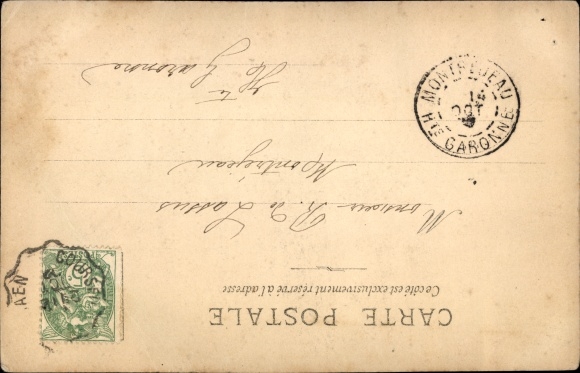 CARTE POSTALE
Ce côté est exclusivement réservé à l'adresse
Monsieur R. de Lassus
Montréjeau
Hte Garonne
MONTRÉJEAU
16
OCT
HTE GARONNE